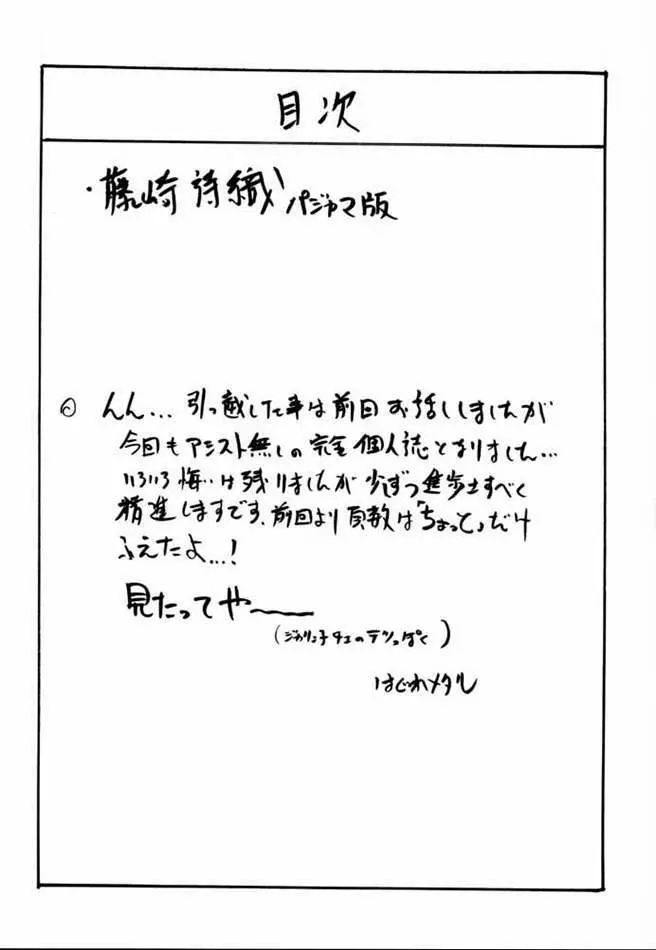 目次
・藤崎詩織 パジャマ版
◎ んん…引っ越しした事は前回お話ししましたが
今回もアシスト無しの完全個人誌となりました…
いろいろ悔いは残りましたが少しずつ進歩すべく
精進しますです、前回より頁数は「ちょっと」だけ
ふえたよ…!
見たってや〜
(ジャリン子チエのテツっぽく)
はぐれメタル